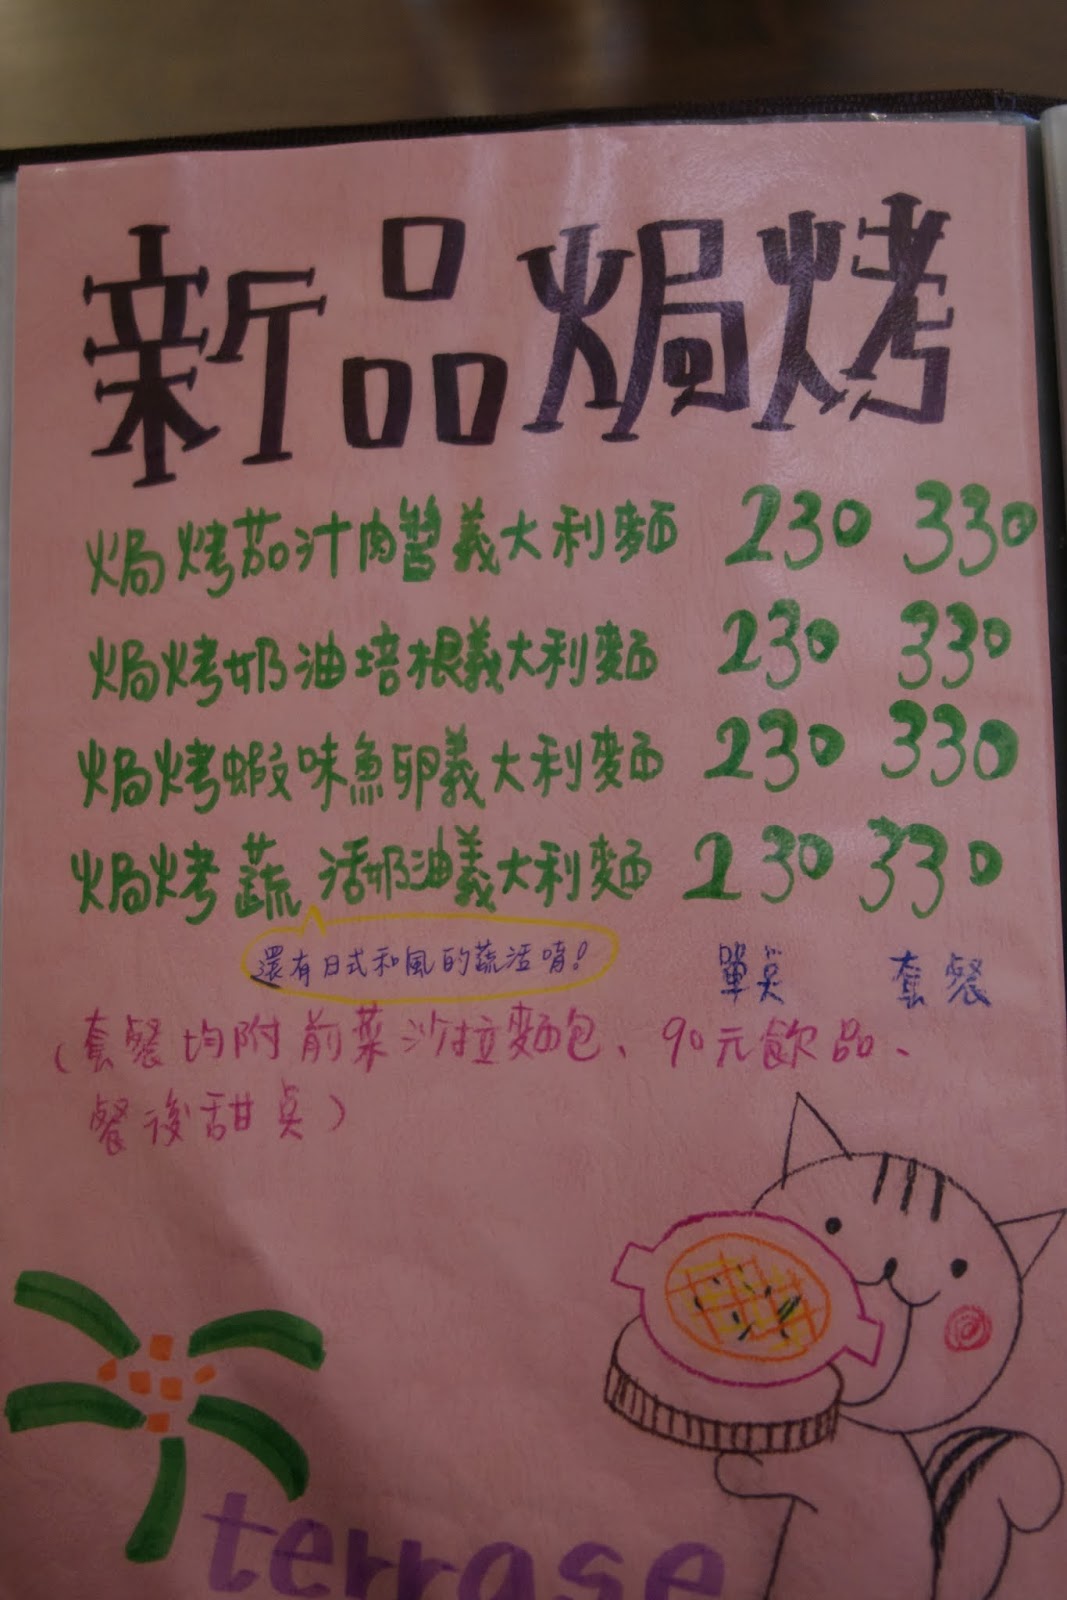 新品焗烤
焗烤茄汁肉醬義大利麵 230 330
焗烤奶油培根義大利麵 230 330
焗烤蝦味魚卵義大利麵 230 330
焗烤蔬活奶油義大利麵 230 330
還有日式和風的蔬活唷!
單點 套餐
(套餐均附前菜沙拉麵包、90元飲品、
餐後甜點)
terrase